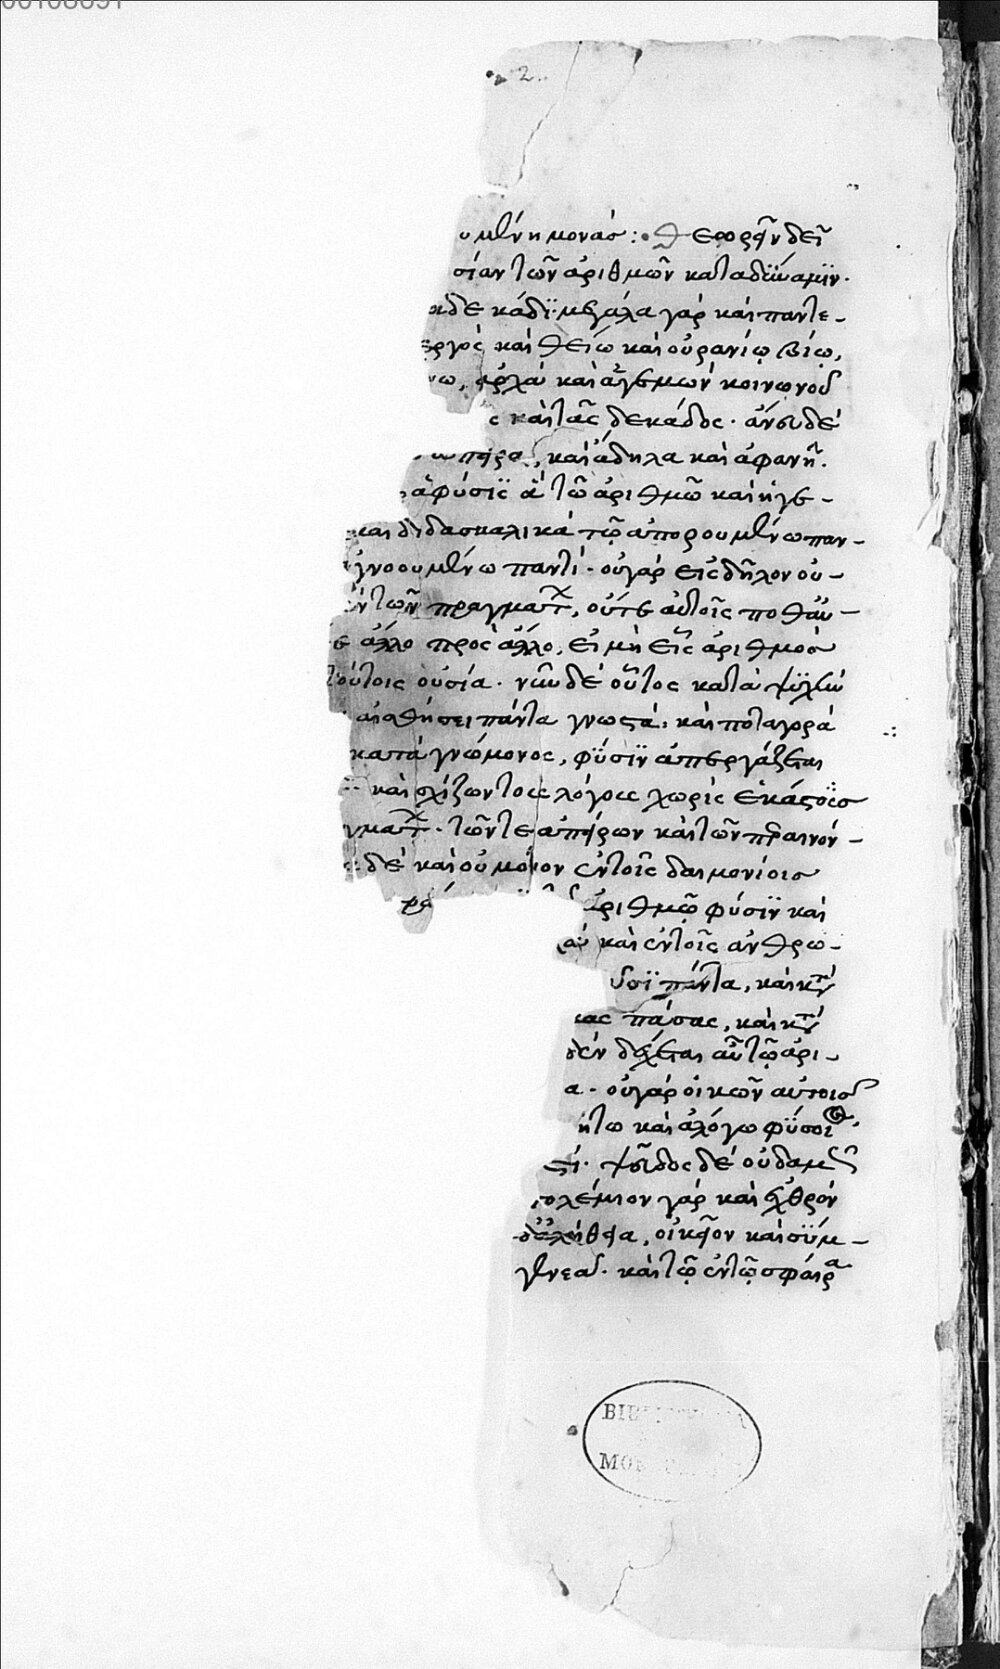 2
υμένη μονάς : Θεωρεῖν δεῖ
σίαν τῶν ἀριθμῶν κατα δύναμιν·
δεκάδι· μεγάλα γὰρ καὶ παντε-
εργὸς καὶ θείω καὶ οὐρανίω βίω,
νω, ἀρχὰ καὶ ἁγεμὼν κοινωνοῦ
ς καὶ τᾶς δεκάδος· ἄνευ δὲ
ἄπειρα, καὶ ἄδηλα καὶ ἀφανῆ.
ἁ φύσις ἁ τῶ ἀριθμῶ καὶ ἡγε-
καὶ διδασκαλικὰ τῶ ἀπορουμένω παν-
ἀγνοουμένω παντί· οὐ γὰρ εἰς δῆλον οὐ-
ν τῶν πραγμάτ, οὔτε αὐτοῖς ποθ' αὑ-
ε ἄλλο πρὸς ἄλλο, εἰ μὴ εἷς ἀριθμὸς
τούτοις οὐσία· νῦν δὲ οὗτος κατὰ ψυχὰν
αἰσθήσει πάντα γνωστά, καὶ ποτάγορα
κατὰ γνώμονος, φύσιν ἀπεργάζεται
καὶ σχίζων τοὺς λόγους χωρὶς ἑκάστοις
γμάτ· τῶν τε ἀπείρων καὶ τῶν περαινόν-
δὲ καὶ οὐ μόνον ἐν τοῖς δαιμονίοις
ἀριθμῶ φύσιν καὶ
καὶ ἐν τοῖς ἀνθρω-
σι πάντα, καὶ κτ
ιας πάσας, καὶ κτ
δὲν δέχεται αὖ τῶ ἀρι-
α· οὐ γὰρ οἰκεῖον αὐτοῖς
ήτω καὶ ἀλόγω φύσιο
τί· ψεῦδος δὲ οὐδαμῶς
πολέμιον γὰρ καὶ ἐχθρὸν
δ' ἀλήθεια, οἰκεῖον καὶ σύμ-
γενεά. καὶ τῶ ἐν τῶ σφαίρα